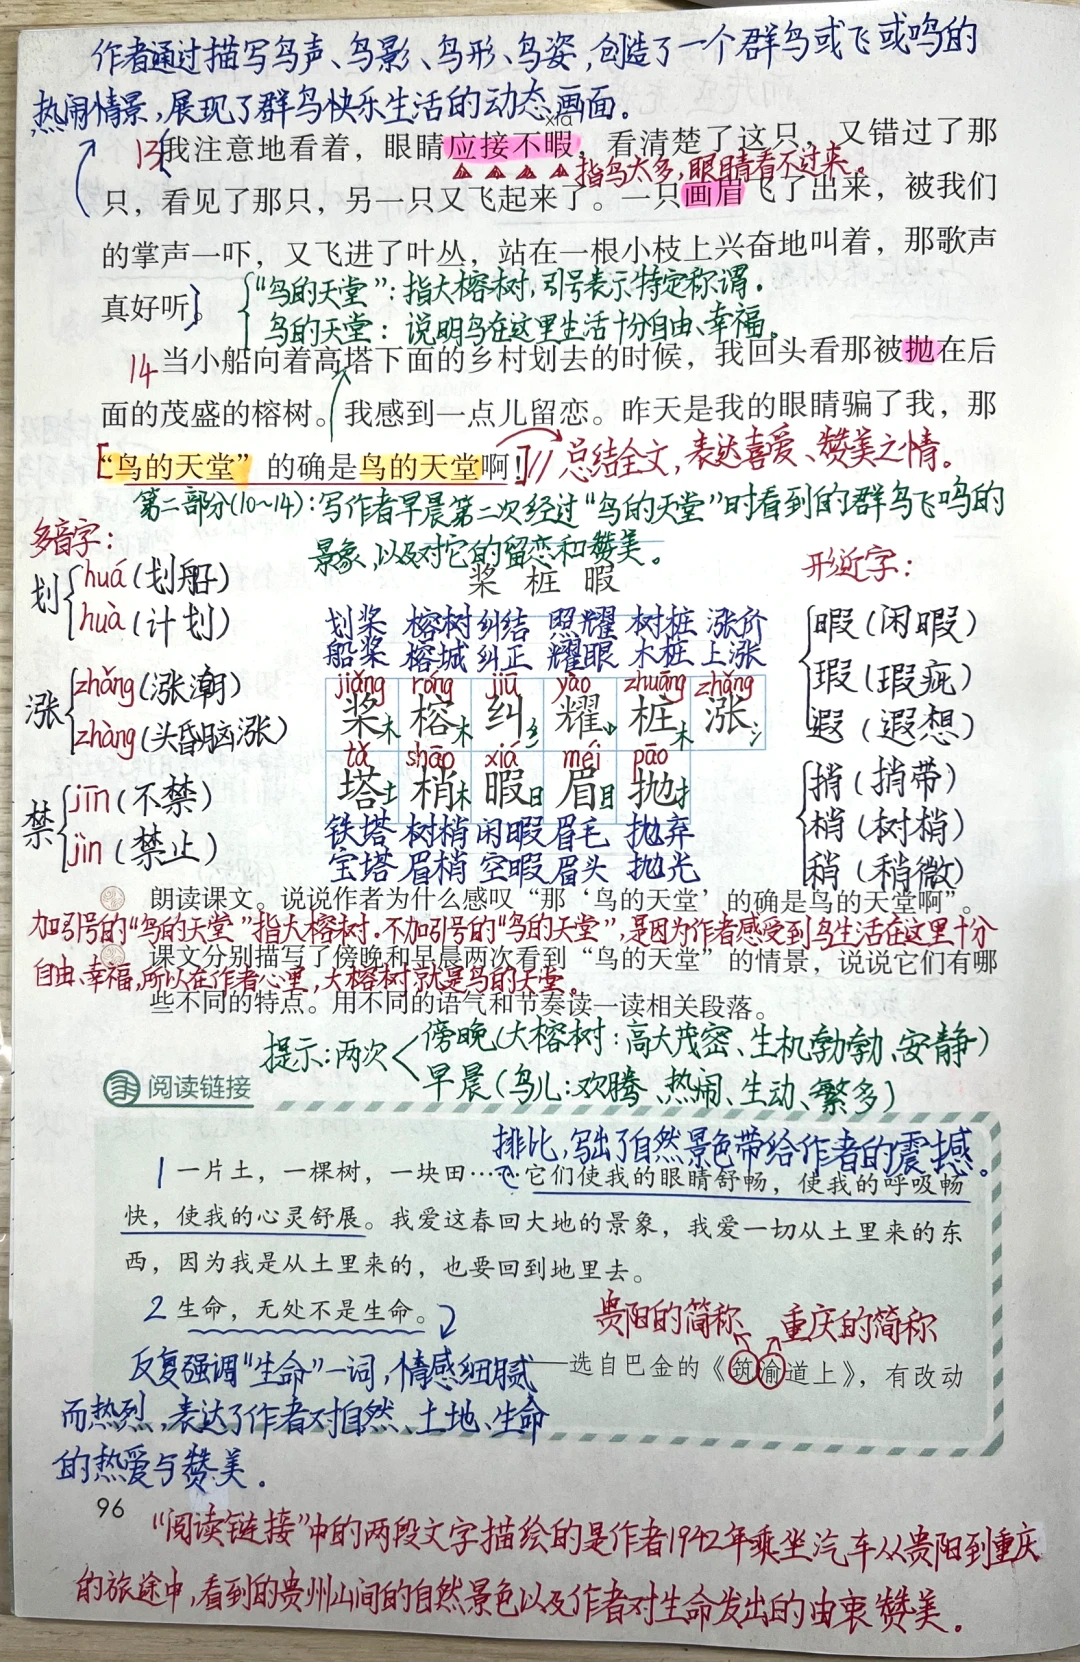 作者通过描写鸟声、鸟影、鸟形、鸟姿,创造了一个群鸟或飞或鸣的
热闹情景,展现了群鸟快乐生活的动态画面。
xiá
13我注意地看着，眼睛应接不暇，看清楚了这只，又错过了那
指鸟太多,眼睛看不过来。
只，看见了那只，另一只又飞起来了。一只画眉飞了出来，被我们
的掌声一吓，又飞进了叶丛，站在一根小枝上兴奋地叫着，那歌声
真好听。
“鸟的天堂”:指大榕树,引号表示特定称谓。
鸟的天堂:说明鸟在这里生活十分自由、幸福。
14当小船向着高塔下面的乡村划去的时候，我回头看那被抛在后
面的茂盛的榕树。我感到一点儿留恋。昨天是我的眼睛骗了我，那
“鸟的天堂”的确是鸟的天堂啊！
总结全文,表达喜爱、赞美之情。
第二部分(10~14):写作者早晨第二次经过“鸟的天堂”时看到的群鸟飞鸣的
景象,以及对它的留恋和赞美。
多音字:
划 huá(划船)
huà(计划)
涨 zhǎng(涨潮)
zhàng(头昏脑涨)
禁 jīn(不禁)
jìn(禁止)
桨 桩 暇
划桨 榕树 纠结 照耀 树桩 涨价
船桨 榕城 纠正 耀眼 木桩 上涨
jiǎng róng jiū yào zhuāng zhǎng
桨木 榕木 纠纟 耀⺌ 桩木 涨氵
tǎ shāo xiá méi pāo
塔土 梢木 暇日 眉目 抛扌
铁塔 树梢 闲暇 眉毛 抛弃
宝塔 眉梢 空暇 眉头 抛光
形近字:
暇(闲暇)
瑕(瑕疵)
遐(遐想)
捎(捎带)
梢(树梢)
稍(稍微)
朗读课文。说说作者为什么感叹“那‘鸟的天堂’的确是鸟的天堂啊”。
加引号的“鸟的天堂”指大榕树。不加引号的“鸟的天堂”,是因为作者感受到鸟生活在这里十分
课文分别描写了傍晚和早晨两次看到“鸟的天堂”的情景，说说它们有哪
自由、幸福,所以在作者心里,大榕树就是鸟的天堂。
些不同的特点。用不同的语气和节奏读一读相关段落。
提示:两次 傍晚(大榕树:高大茂密、生机勃勃、安静)
早晨(鸟儿:欢腾、热闹、生动、繁多)
阅读链接
排比,写出了自然景色带给作者的震撼。
1 一片土，一棵树，一块田……它们使我的眼睛舒畅，使我的呼吸畅
快，使我的心灵舒展。我爱这春回大地的景象，我爱一切从土里来的东
西，因为我是从土里来的，也要回到地里去。
2 生命，无处不是生命。
贵阳的简称 重庆的简称
——选自巴金的《筑渝道上》，有改动
反复强调“生命”一词,情感细腻
而热烈,表达了作者对自然、土地、生命
的热爱与赞美。
96
“阅读链接”中的两段文字描绘的是作者1942年乘坐汽车从贵阳到重庆
的旅途中,看到的贵州山间的自然景色以及作者对生命发出的由衷赞美。